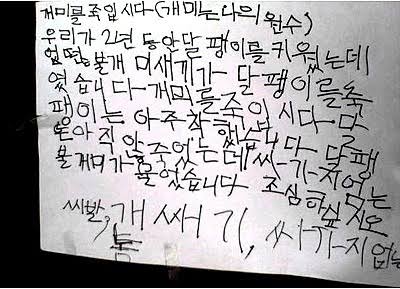 거미를 죽입시다 (개미는 나의 원수)
우리가 2년 동안 달팽이를 키웠는데
어떤 불개미새끼가 달팽이를 죽
였습니다 - 개미를 죽입시다 - 달
팽이는 아주 착했습니다 달팽
은 아직 안 죽었는데 싸-가-지 없는
불개미가 물었습니다 조심하십시오
씨발, 개 쌔 기, 싸가-지 없는
놈